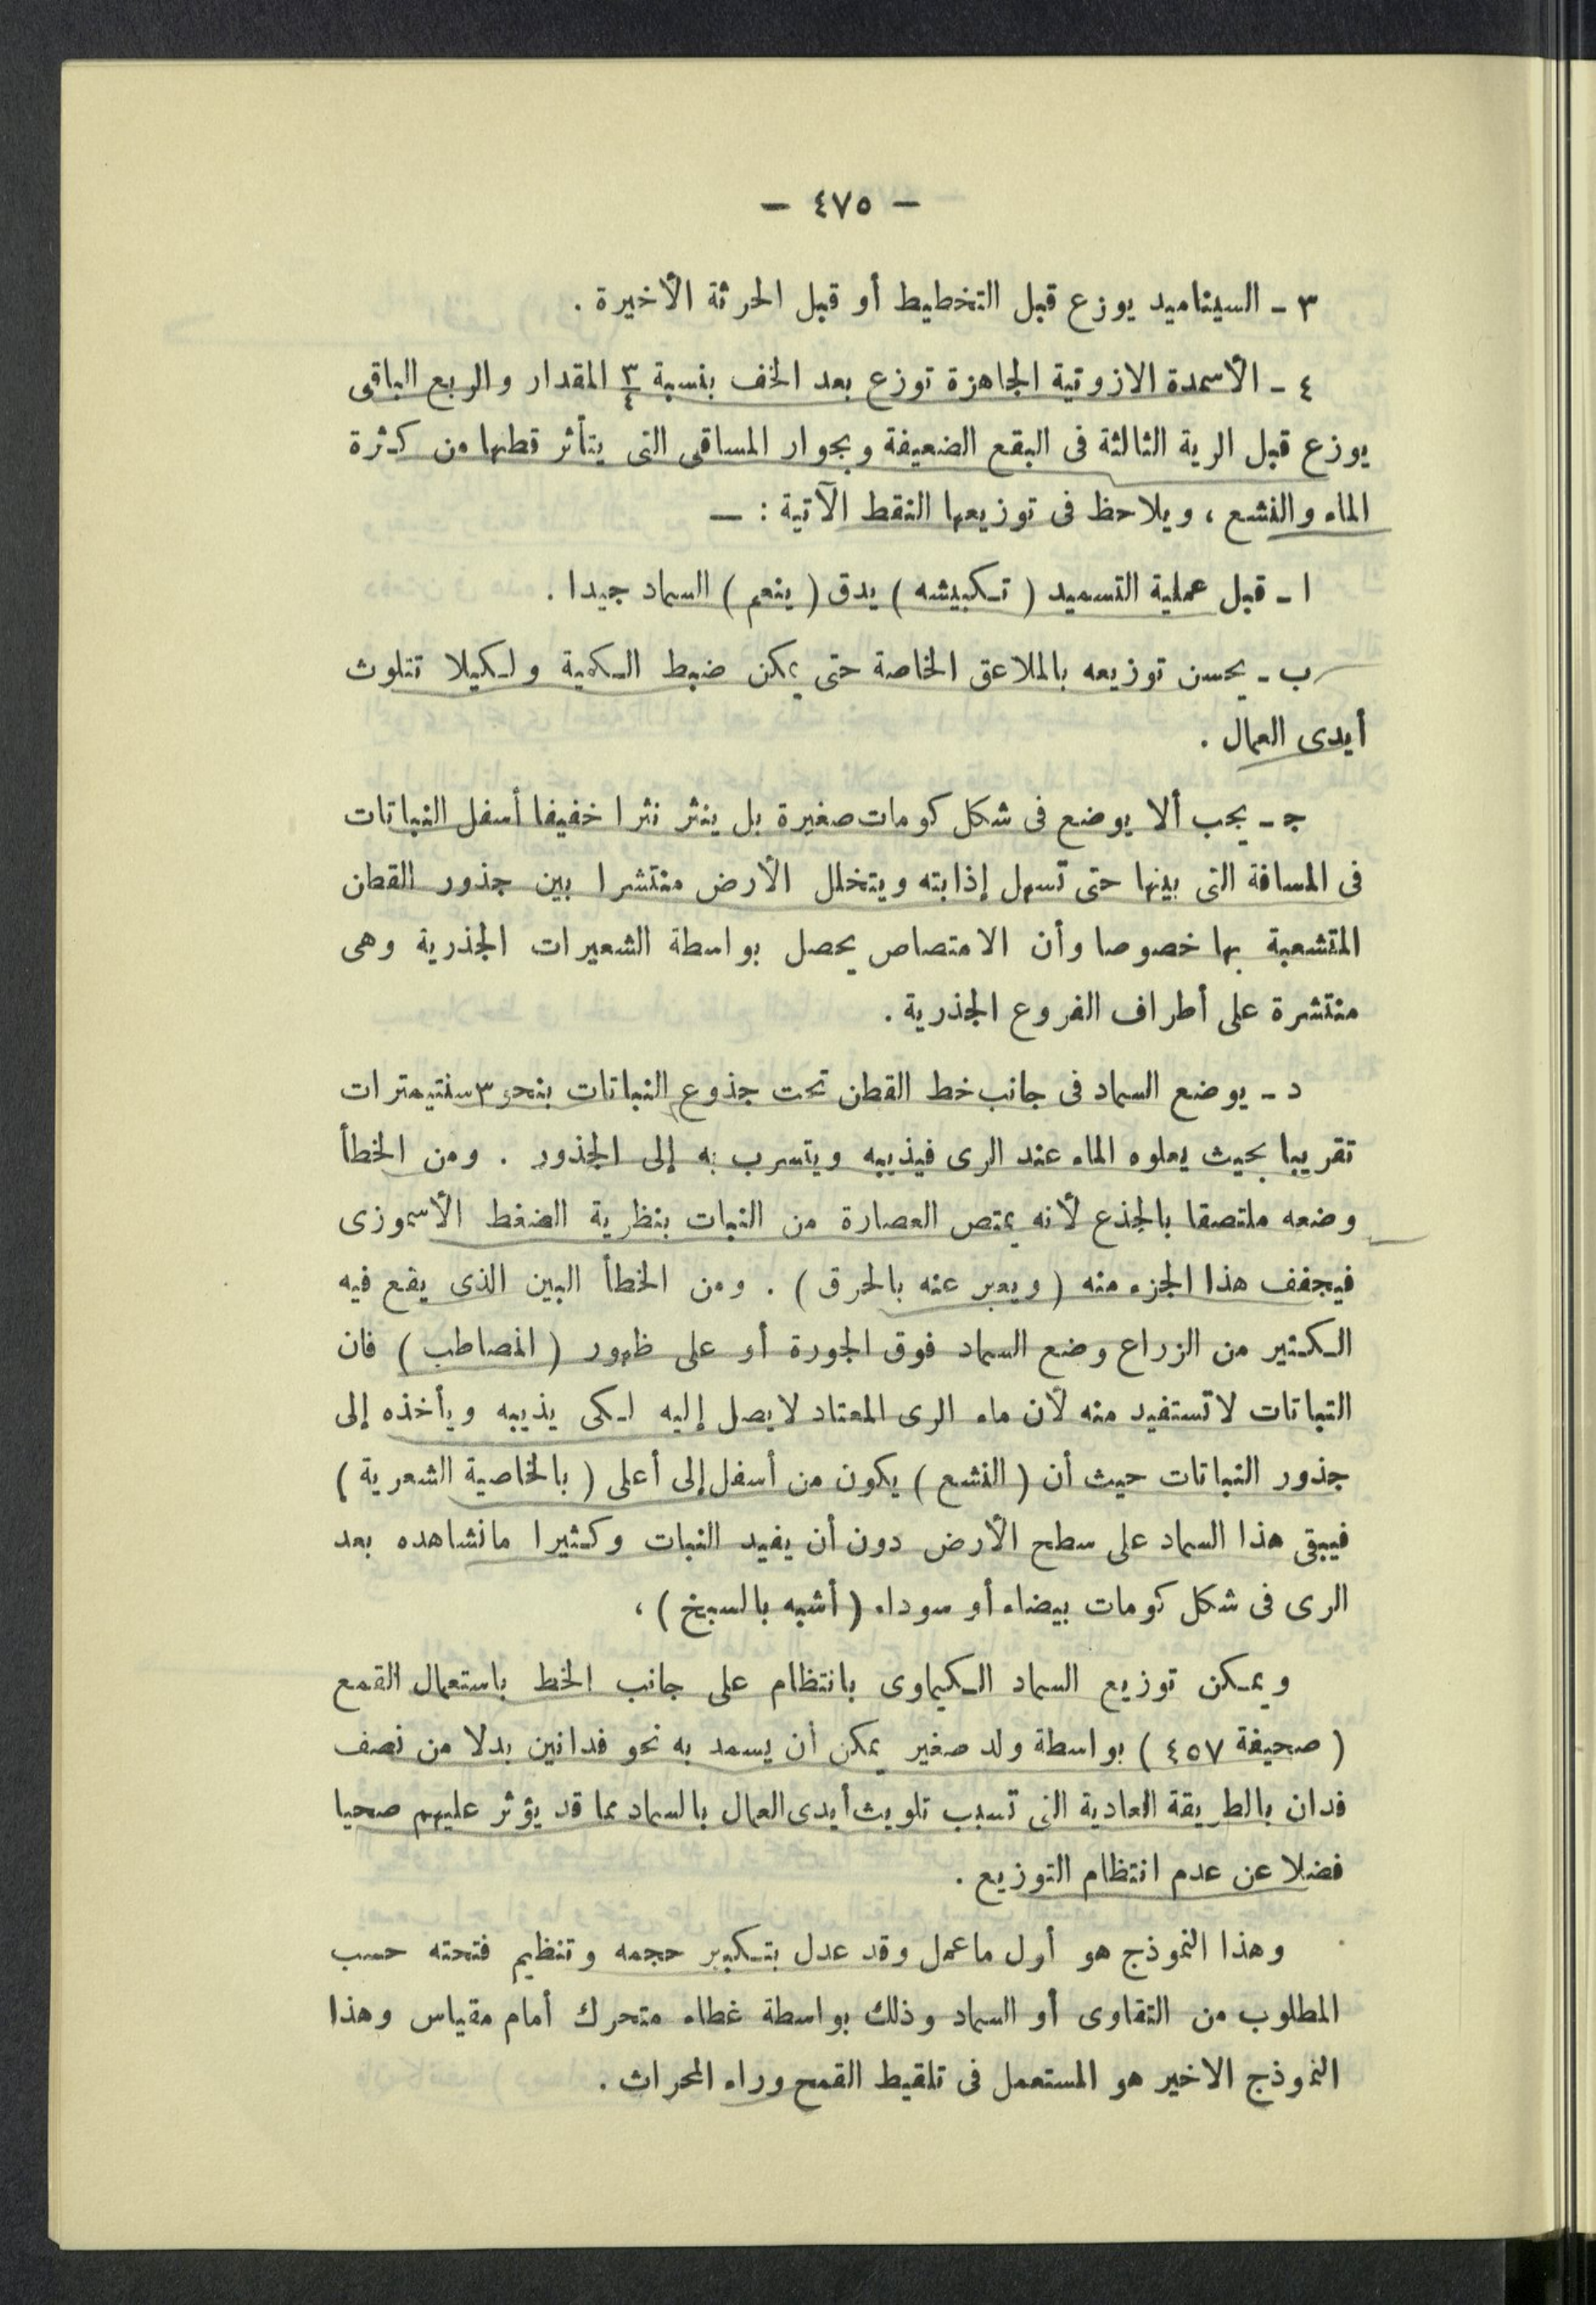 — ٤٧٥ —
٣ - السيناميد يوزع قبل التخطيط أو قبل الحرثة الأخيرة .
٤ - الأسمدة الازوتية الجاهزة توزع بعد الخف بنسبة ٣/٤ المقدار والربع الباقى
يوزع قبل الرية الثالثة فى البقع الضعيفة وبجوار المساقى التى يتأثر قطنها من كثرة
الماء والنشع ، ويلاحظ فى توزيعها النقط الآتية : —
ا - قبل عملية التسميد ( تكبيشه ) يدق ( ينعم ) السماد جيدا .
ب - يحسن توزيعه بالملاعق الخاصة حتى يمكن ضبط الكمية ولكيلا تتلوث
أيدى العمال .
جـ - يجب ألا يوضع فى شكل كومات صغيرة بل ينثر نثرا خفيفا أسفل النباتات
فى المسافة التى بينها حتى تسهل إذابته ويتخلل الأرض منتشرا بين جذور القطن
المتشعبة بها خصوصا وأن الامتصاص يحصل بواسطة الشعيرات الجذرية وهى
منتشرة على أطراف الفروع الجذرية .
د - يوضع السماد فى جانب خط القطن تحت جذوع النباتات بنحو ٣ سنتيمترات
تقريبا بحيث يعلوه الماء عند الرى فيذيبه ويتسرب به إلى الجذور . ومن الخطأ
وضعه ملتصقا بالجذع لأنه يمتص العصارة من النبات بنظرية الضغط الأسموزى
فيجفف هذا الجزء منه ( ويعبر عنه بالحرق ) . ومن الخطأ البين الذى يقع فيه
الكثير من الزراع وضع السماد فوق الجورة أو على ظهور ( المصاطب ) فان
النباتات لا تستفيد منه لأن ماء الرى المعتاد لا يصل إليه لكى يذيبه ويأخذه إلى
جذور النباتات حيث أن ( النشع ) يكون من أسفل إلى أعلى ( بالخاصية الشعرية )
فيبقى هذا السماد على سطح الأرض دون أن يفيد النبات وكثيرا مانشاهده بعد
الرى فى شكل كومات بيضاء أو سوداء ( أشبه بالسبخ ) ،
ويمكن توزيع السماد الكيماوى بانتظام على جانب الخط باستعمال القمع
( صحيفة ٤٥٧ ) بواسطة ولد صغير يمكن أن يسمد به نحو فدانين بدلا من نصف
فدان بالطريقة العادية التى تسبب تلويث أيدى العمال بالسماد مما قد يؤثر عليهم صحيا
فضلا عن عدم انتظام التوزيع .
وهذا النموذج هو أول ماعمل وقد عدل بتكبير حجمه وتنظيم فتحته حسب
المطلوب من التقاوى أو السماد وذلك بواسطة غطاء متحرك أمام مقياس وهذا
النموذج الاخير هو المستعمل فى تلقيط القمح وراء المحراث .